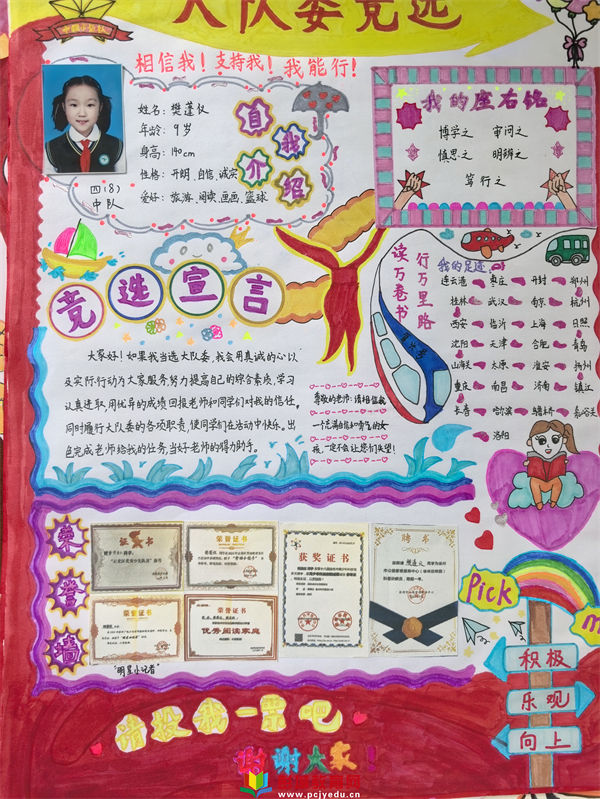 大队委竞选
中国少先队
相信我！支持我！我能行！
姓名：樊蓬仪
年龄：9岁
身高：140cm
性格：开朗、自信、诚实
爱好：旅游、阅读、画画、篮球
四(8)
中队
自我介绍
我的座右铭
博学之 审问之
慎思之 明辨之
笃行之
竞选宣言
大家好！如果我当选大队委，我会用真诚的心以
及实际行动为大家服务，努力提高自己的综合素质，学习
认真进取，用优异的成绩回报老师和同学们对我的信任。
同时履行大队委的各项职责，使同学们在活动中快乐。出
色完成老师给我的任务，当好老师的得力助手。
尊敬的老师：请相信我
一个充满自信和勇气的女
孩，一定不会让您们失望！
读万卷书
行万里路
我的足迹
连云港 枣庄 开封 郑州
桂林 武汉 南京 杭州
西安 临沂 上海 日照
沈阳 天津 合肥 青岛
山海关 太原 淮安 扬州
重庆 南昌 济南 镇江
长春 哈尔滨 嘉峪关
洛阳
荣誉墙
荣誉证书
荣誉证书
荣誉证书
优秀阅读家庭
获奖证书
聘书
"明星小记者"
Pick
m
积极
乐观
向上
请投我一票吧
谢谢大家！
www.pcjyedu.cn